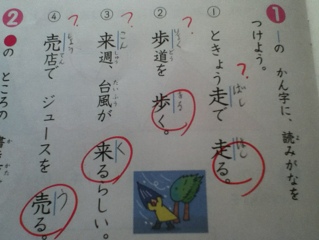 1 ―の かん字に、読みがなを
つけよう。
① ときょう走で 走る。
② 歩道を 歩く。
③ 来週、台風が 来るらしい。
④ 売店で ジュースを 売る。
2 ●の ところの